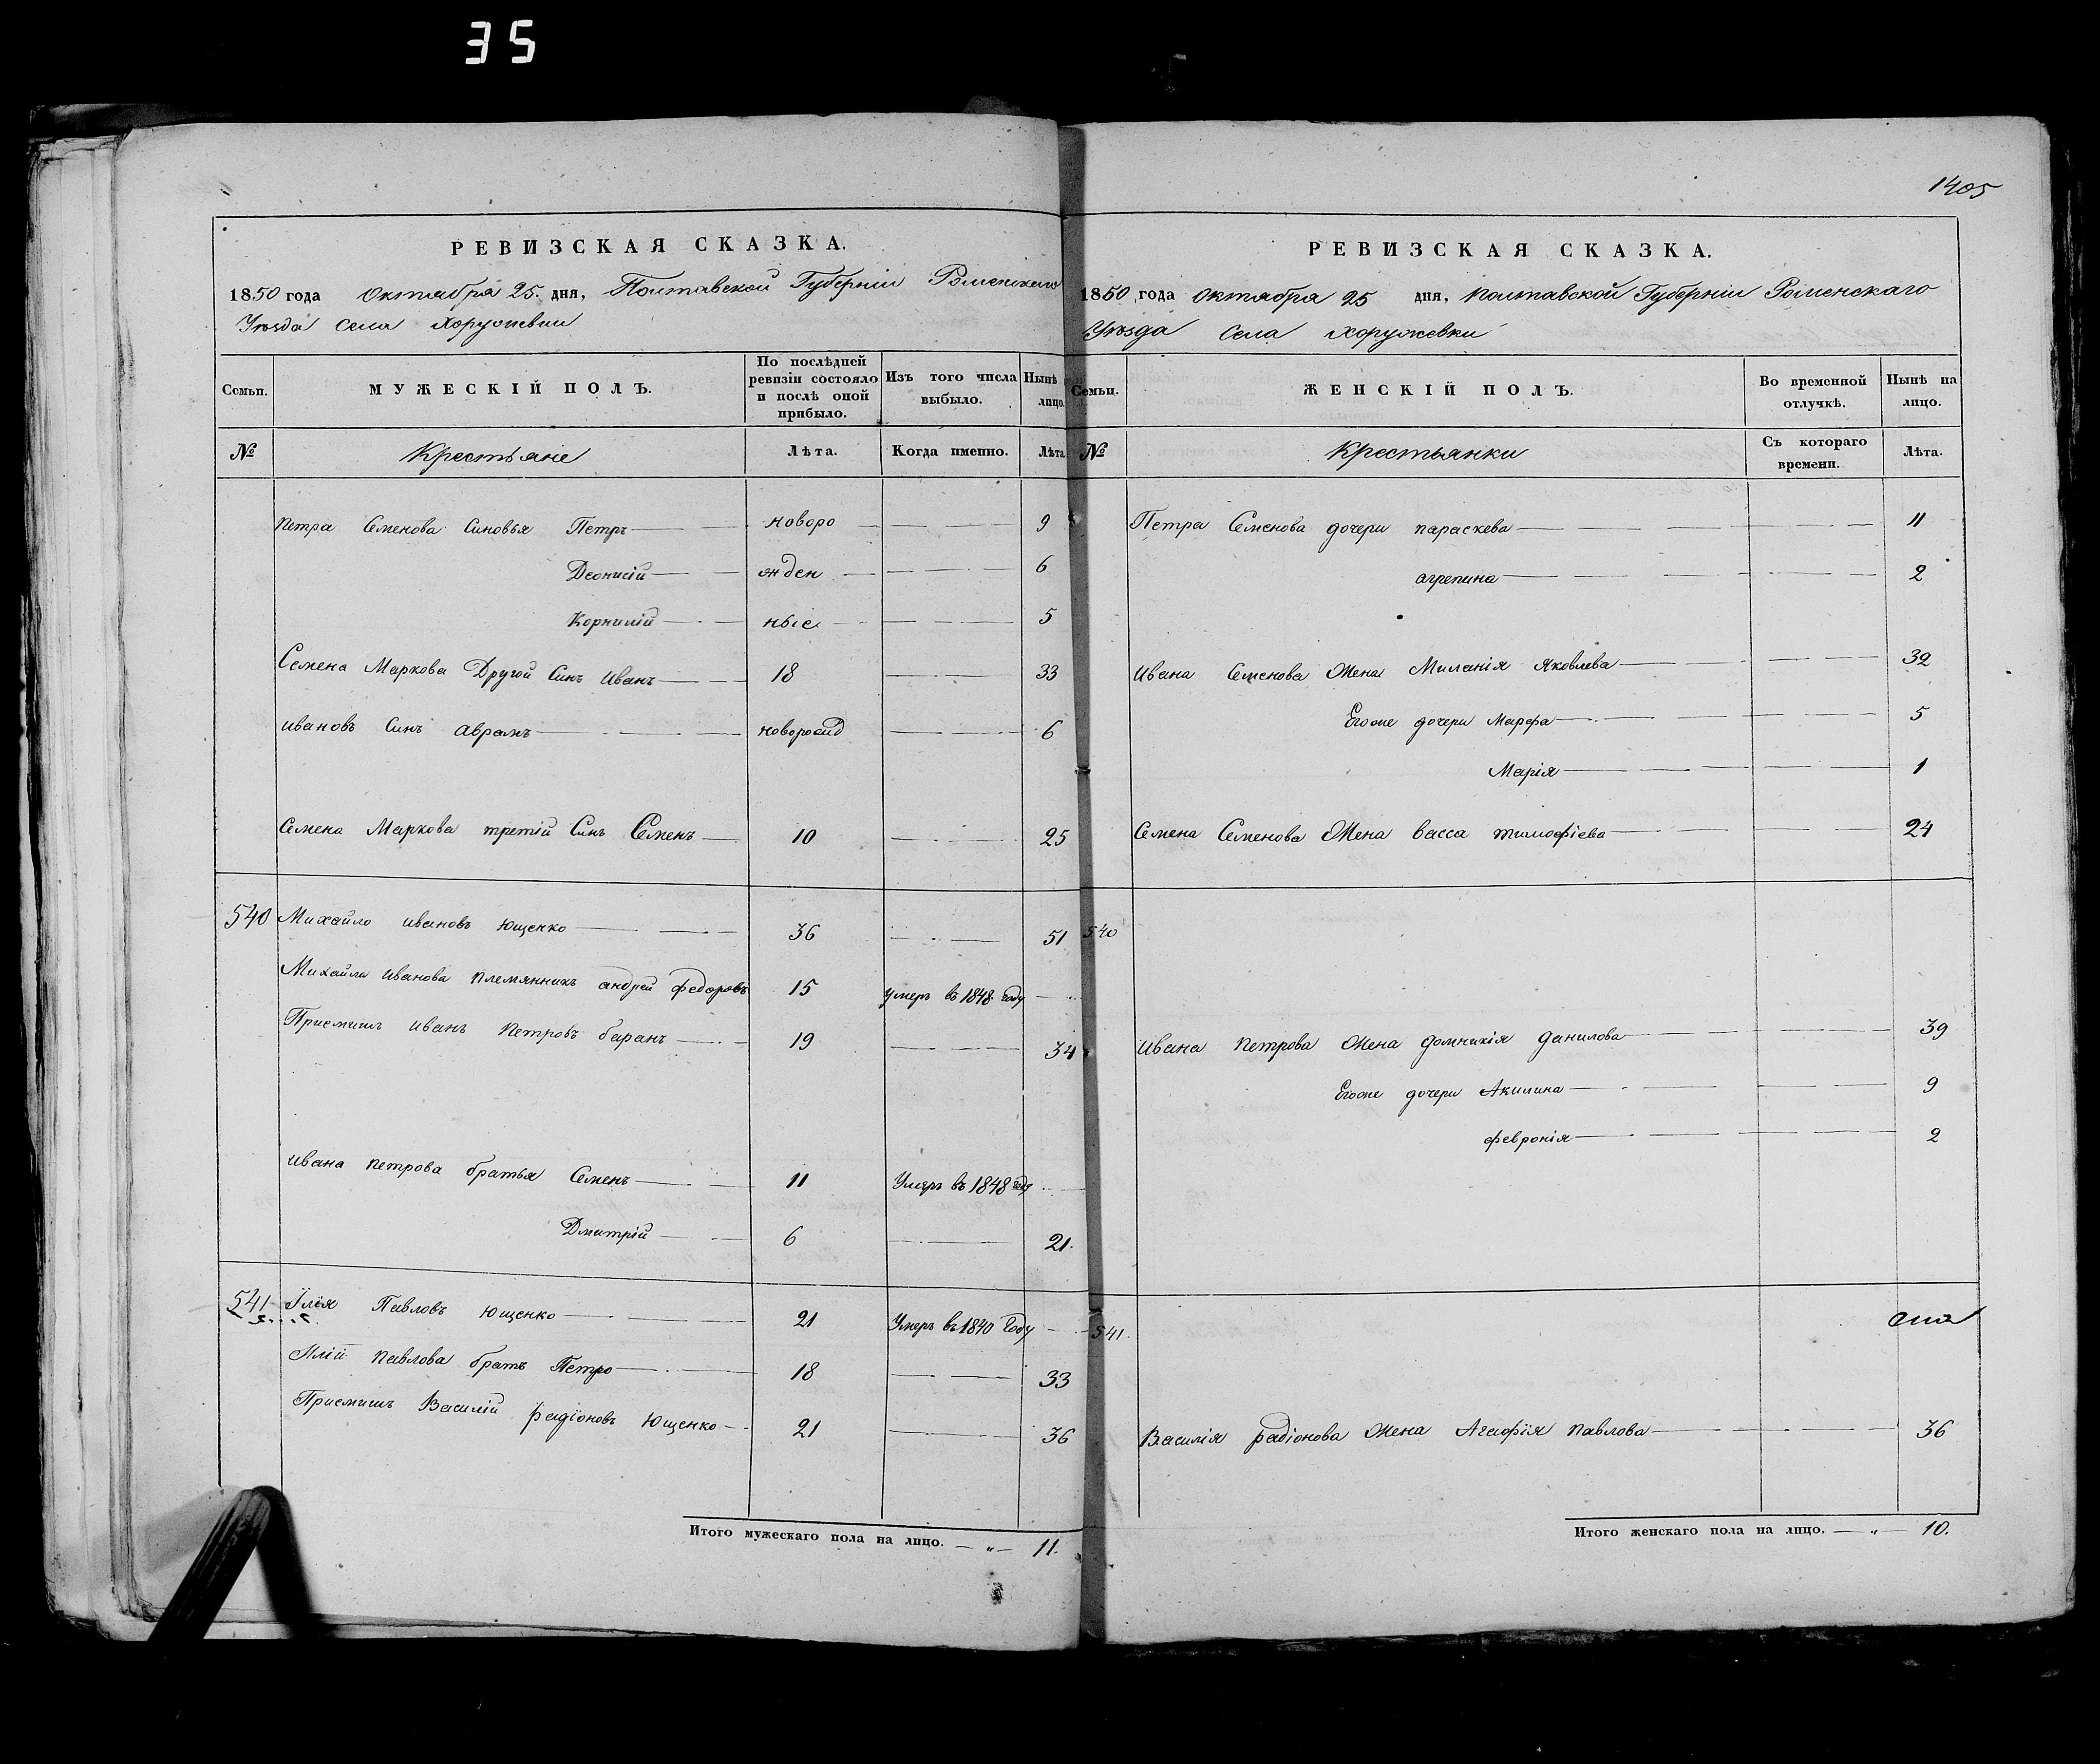 35
1405
РЕВИЗСКАЯ СКАЗКА.
1850 года Октября 25. дня, Полтавской Губерніи Роменскаго
Уѣзда села Хоружевки
Семьи. МУЖЕСКІЙ ПОЛЪ. По послѣдней ревизіи состояло и послѣ оной прибыло. Изъ того числа выбыло. Нынѣ лицо.
№ Крестьяне Лѣта. Когда именно. Лѣта
Петра Семенова Синовья Петръ новоро 9
Деонисій жден 6
Корнилій ные 5
Семена Маркова Другой Синъ Иванъ 18 33
Ивановъ Синъ Аврамъ новорожд 6
Семена Маркова третій Синъ Семенъ 10 25
540 Михайло Ивановъ Ющенко 36 51
Михайла Иванова племянникъ андрей Федоровъ 15 умеръ въ 1848 году
Приемишъ Иванъ Петровъ баранъ 19 34
Ивана петрова братья Семенъ 11 Умеръ въ 1848 году
Дмитрій 6 21.
541 Ілія Павловъ Ющенко 21 Умеръ въ 1840 Году
Иліи павлова братъ Петро 18 33
Приемишъ Василій радіоновъ Ющенко 21 36
Итого мужескаго пола на лицо. — „ — 11.
РЕВИЗСКАЯ СКАЗКА.
1850 года Октября 25 дня, Полтавской Губерніи Роменскаго
Уѣзда Села Хоружевки
Семьи. ЖЕНСКІЙ ПОЛЪ. Во временной отлучкѣ. Нынѣ на лицо.
№ Крестьянки Съ котораго времени. Лѣта.
Петра Семенова дочери параскева 11
агрепина 2
Ивана Семенова Жена Миланія Яковлева 32
Егоже дочери Марфа 5
Марія 1
Семена Семенова Жена васса тимофіева 24
540
Ивана петрова Жена домникія данилова 39
Егоже дочери Акилина 9
февронія 2
541.
Василія радіонова Жена Агафія павлова 36
Итого женскаго пола на лицо. — „ — 10.